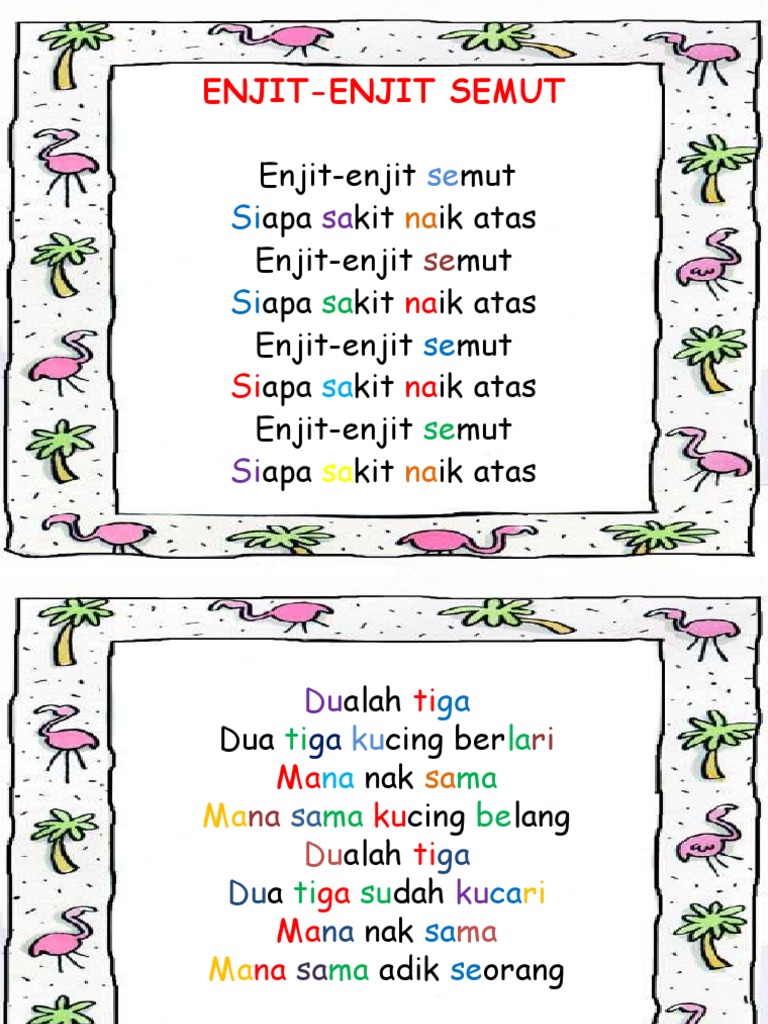 ENJIT-ENJIT SEMUT
Enjit-enjit semut
Siapa sakit naik atas
Enjit-enjit semut
Siapa sakit naik atas
Enjit-enjit semut
Siapa sakit naik atas
Enjit-enjit semut
Siapa sakit naik atas
Dualah tiga
Dua tiga kucing berlari
Mana nak sama
Mana sama kucing belang
Dualah tiga
Dua tiga sudah kucari
Mana nak sama
Mana sama adik seorang